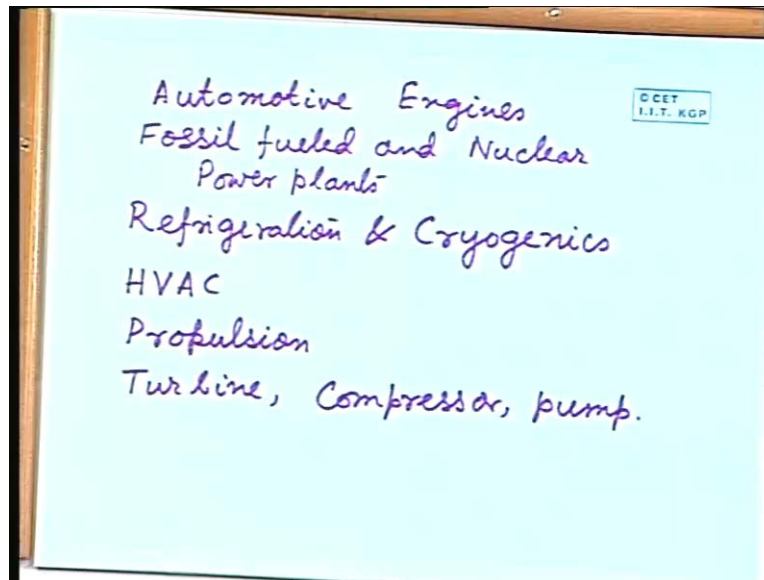 Automotive Engines
© CET
I.I.T. KGP
Fossil fueled and Nuclear
Power plants
Refrigeration & Cryogenics
HVAC
Propulsion
Turbine, Compressor, pump.